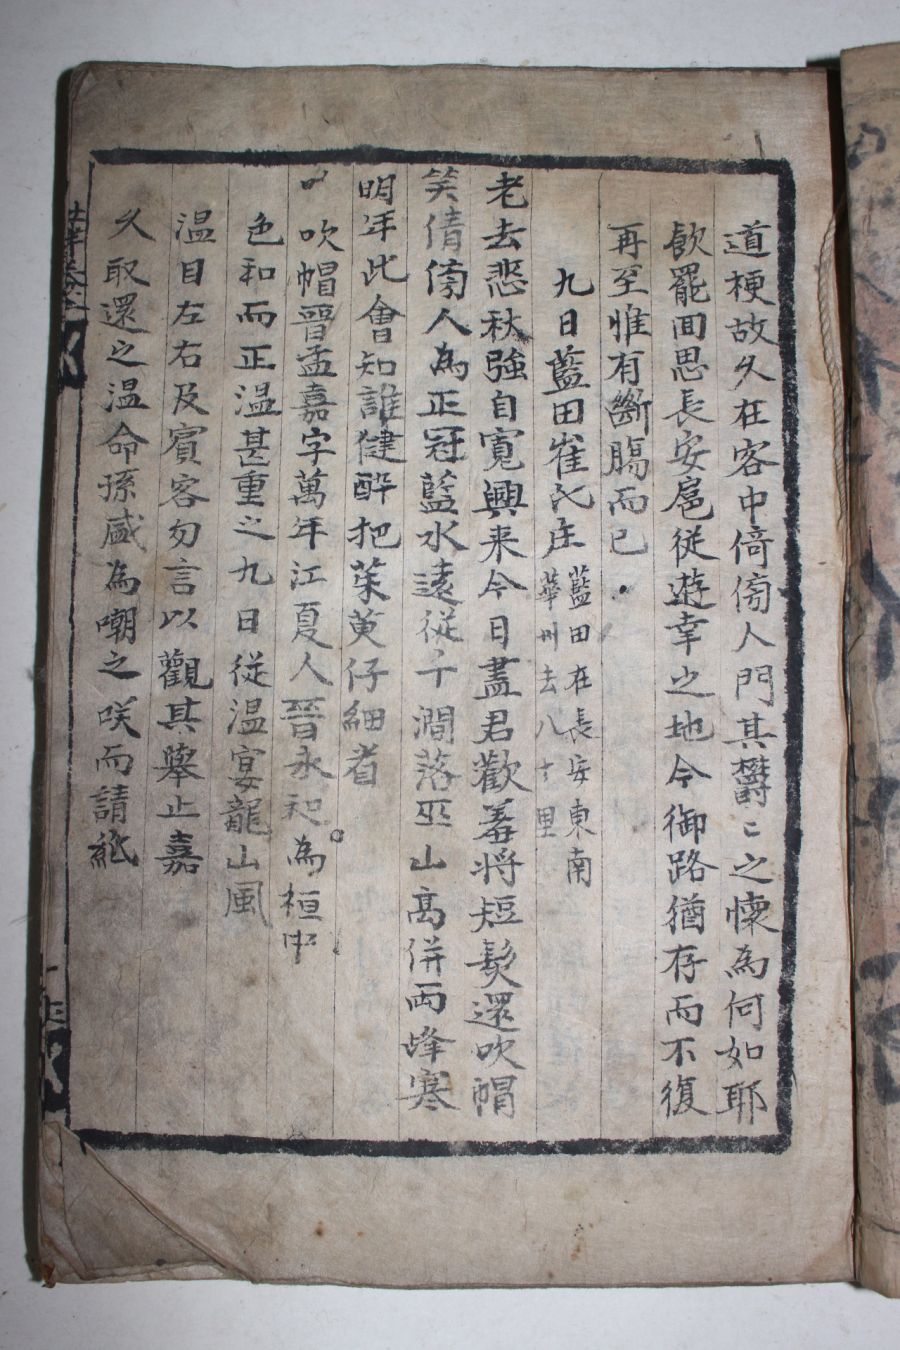 道梗故久在客中倚傍人門其欝〻之懷為何如耶
飮罷回思長安扈従遊幸之地今御路猶存而不復
再至惟有斷腸而已
九日藍田崔氏庄
藍田在長安東南
華州去八十里
老去悲秋強自寬興来今日盡君歡羞将短髮還吹帽
笑倩傍人為正冠藍水遠従千澗落巫山高併両峰寒
明年此會知誰健酔把茱萸仔細看
吹帽晉孟嘉字萬年江夏人晉永和為桓中
色和而正温甚重之九日従温宴龍山風
温目左右及賓客勿言以觀其舉止嘉
久取還之温命孫盛為嘲之咲而請紙